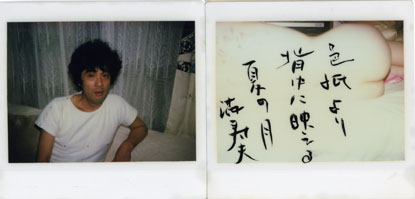 色紙より
背中に映える
夏の月
満寿夫